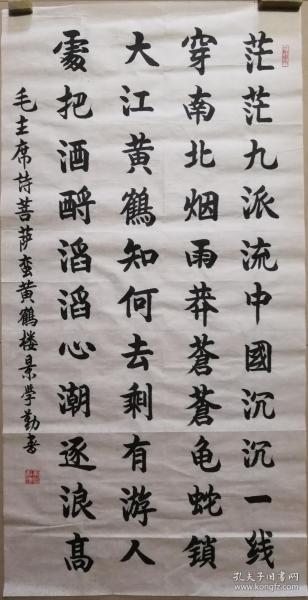 茫茫九派流中國沉沉一线
穿南北烟雨莽蒼蒼龟蛇鎖
大江黄鶴知何去剩有游人
處把酒酹滔滔心潮逐浪高
毛主席詩菩萨蛮黄鶴楼景學勤书
孔夫子旧书网